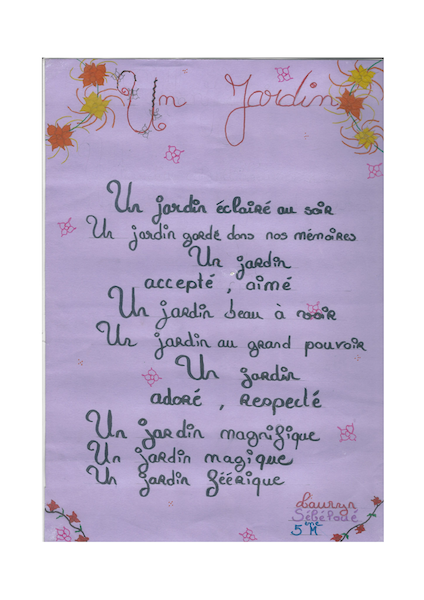 Un Jardin
Un jardin éclairé au soir
Un jardin gardé dans nos mémoires
Un jardin
accepté, aimé
Un jardin beau à voir
Un jardin au grand pouvoir
Un jardin
adoré, respecté
Un jardin magnifique
Un jardin magique
Un jardin féérique
5ème H